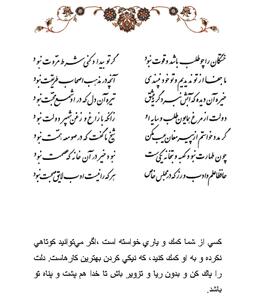 خستگان را چو طلب باشد و قوت نبود گر تو بیداد کنی شرط مروت نبود
ما جفا از تو ندیدیم و تو خود نپسندی آنچه در مذهب اصحاب طریقت نبود
خیره آن دیده که آبش نبرد گریه عشق تیره آن دل که در او شمع محبت نبود
دولت از مرغ همایون طلب و سایه او زانکه با زاغ و زغن شهپر دولت نبود
گر مدد خواستم از پیر مغان عیب مکن شیخ ما گفت که در صومعه همت نبود
چون طهارت نبود کعبه و بتخانه یکی ست نبود خیر در آن خانه که عصمت نبود
حافظا علم و ادب ورز که در مجلس خاص هر که را نیست ادب لایق صحبت نبود
كسي از شما كمك و ياري خواسته است ،اگر مي‌توانيد كوتاهي
نكرده و به او كمك كنيد، كه نيكي كردن بهترين كارهاست. دلت
را پاك كن و بدون ريا و تزوير باش تا خدا هم پشت و پناه تو
باشد.